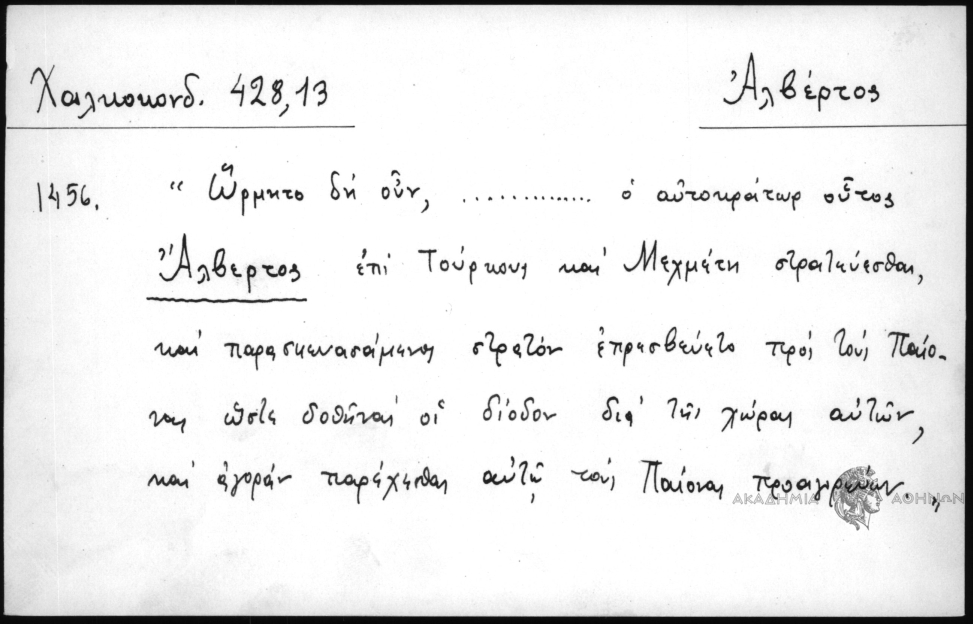 Χαλκοκονδ. 428,13
Ἀλβέρτος
1456.
“ Ὥρμητο δή οὖν, ............. ὁ αὐτοκράτωρ οὗτος
Ἀλβερτος ἐπί Τούρκους καί Μεχμέτη στρατεύεσθαι,
καί παρασκευασάμενος στρατόν ἐπρεσβεύετο πρός τούς Παίο-
νας ὥστε δοθῆναί οἱ δίοδον διά τῆς χώρας αὐτῶν,
καί ἀγοράν παρέχεσθαι αὐτῷ τούς Παίονας προαγορεύων. „
ΑΚΑΔΗΜΙΑ ΑΘΗΝΩΝ